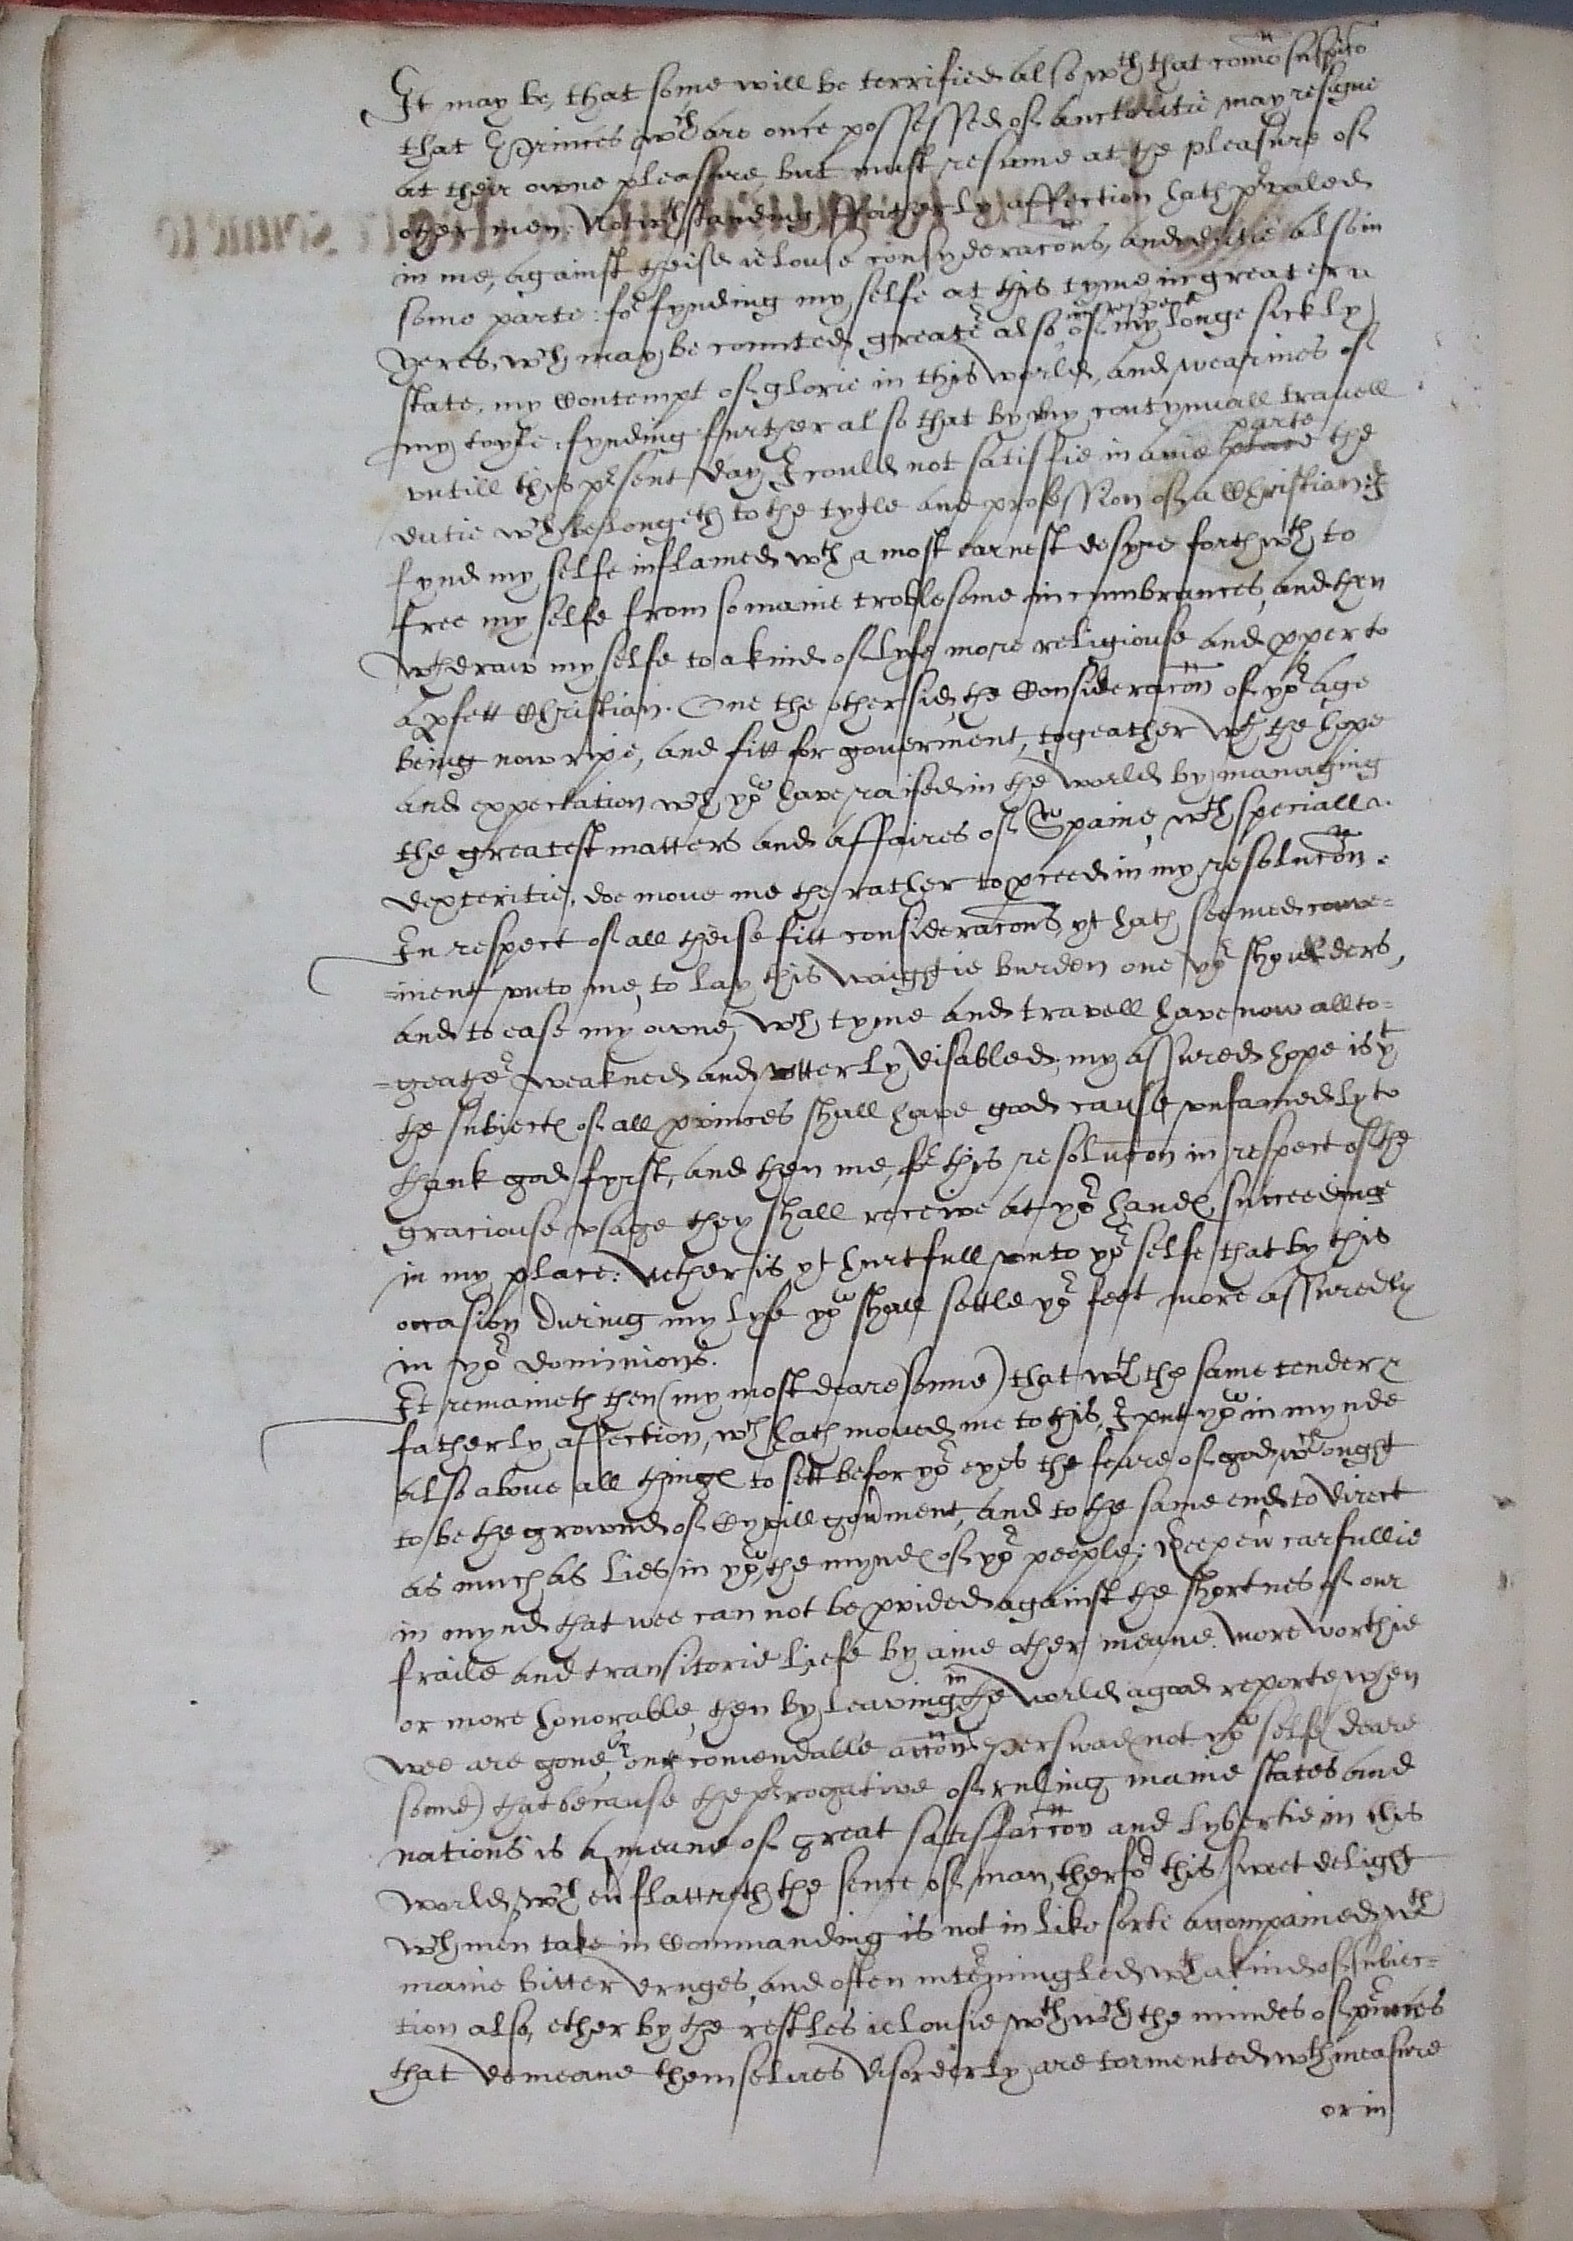 It may be, that some will be terrified also wth that comõ suspitiõ
that Princes wch are once possessed of aucteritie may resigne
at their owne pleasure, but must resume at the pleasure of
other men. Notwthstanding ffatherly affection hath pruailed
in me, against theise ielouse consyderacõns, and dutie also in
some parte: for fynding my selfe at this tyme in greater
yeres, wch may be counted greate also in respect of my longe sickly
state, my Contempt of glorie in this world, and wearines of
my toyle: fynding further also that by my contynuall trauell
vntill this prsent day I could not satisfie in anie place parte the
dutie wch belongeth to the tytle and profession of a Christian: I
fynd my selfe inflamed wth a most earnest desyre forthwth to
free my selfe from so manie troblesome incumbrances, and then
wthdraw my selfe to a kind of lyfe more religiouse and pper to
a pfett Christian. One the other side, the Consideracõn of yor age
being now ripe, and fitt for gouerment, togeather wth the hope
and expectation wch yow haue raised in the world by managing
the greatest matters and affaires of Spaine, wth speciall
dexteritie, doe moue me the rather to pceed in my resolucõn.
In respect of all theise fitt consideracõns, yt hath seemed conve=
=nient vnto me, to lay this waightie burden one yor shoulders,
and to ease my owne, wch tyme and travell have now allto=
=geather weakned and vtterly disabled; my assured hope is yt
the subiectes of all princes shall have good cause vnfainedly to
thank god fyrst, and then me, for this resolucõn in respect of the
graciouse vsage they shall receive at yor handes, succeedinge
in my place: Nether is yt hurtfull vnto yor selfe that by this
occasion during my lyfe yow shall settle yor feet more assuredly
in yor dominions.
It remaineth then (my most deare sonne) that wth the same tender
fatherly affection, wch hath moued me to this, I put yow in mynde
also aboue all thinges to sett befor yor eyes the feare of god wch ought
to be the grownd of Cyvill gouerment, and to the same end to direct
as much as lies in yow, the myndes of yor people; Keepe carfullie
in mynd that wee can not be pvided against the shortnes of our
fraile and transitorie liefe by anie other meane more worthie
or more honorable, then by leaving in the world a good reporte when
wee are gone, of our comendable accõns. Perswad not yor selfe (deare
sonne) that because the prrogative of ruling manie states and
nations is a meane of great satisfaccõn and lybertie in this
world, wch flattreth the sence of man, therfor this sweet delight
wch men take in Commanding is not in like sorte accompained wth
manie bitter , and often intermingled wth a kind of subiec=
tion also, ether by the restles ielousie wth wch the mindes of princes
that demeane themselves disorderly are tormented wth measure
or in